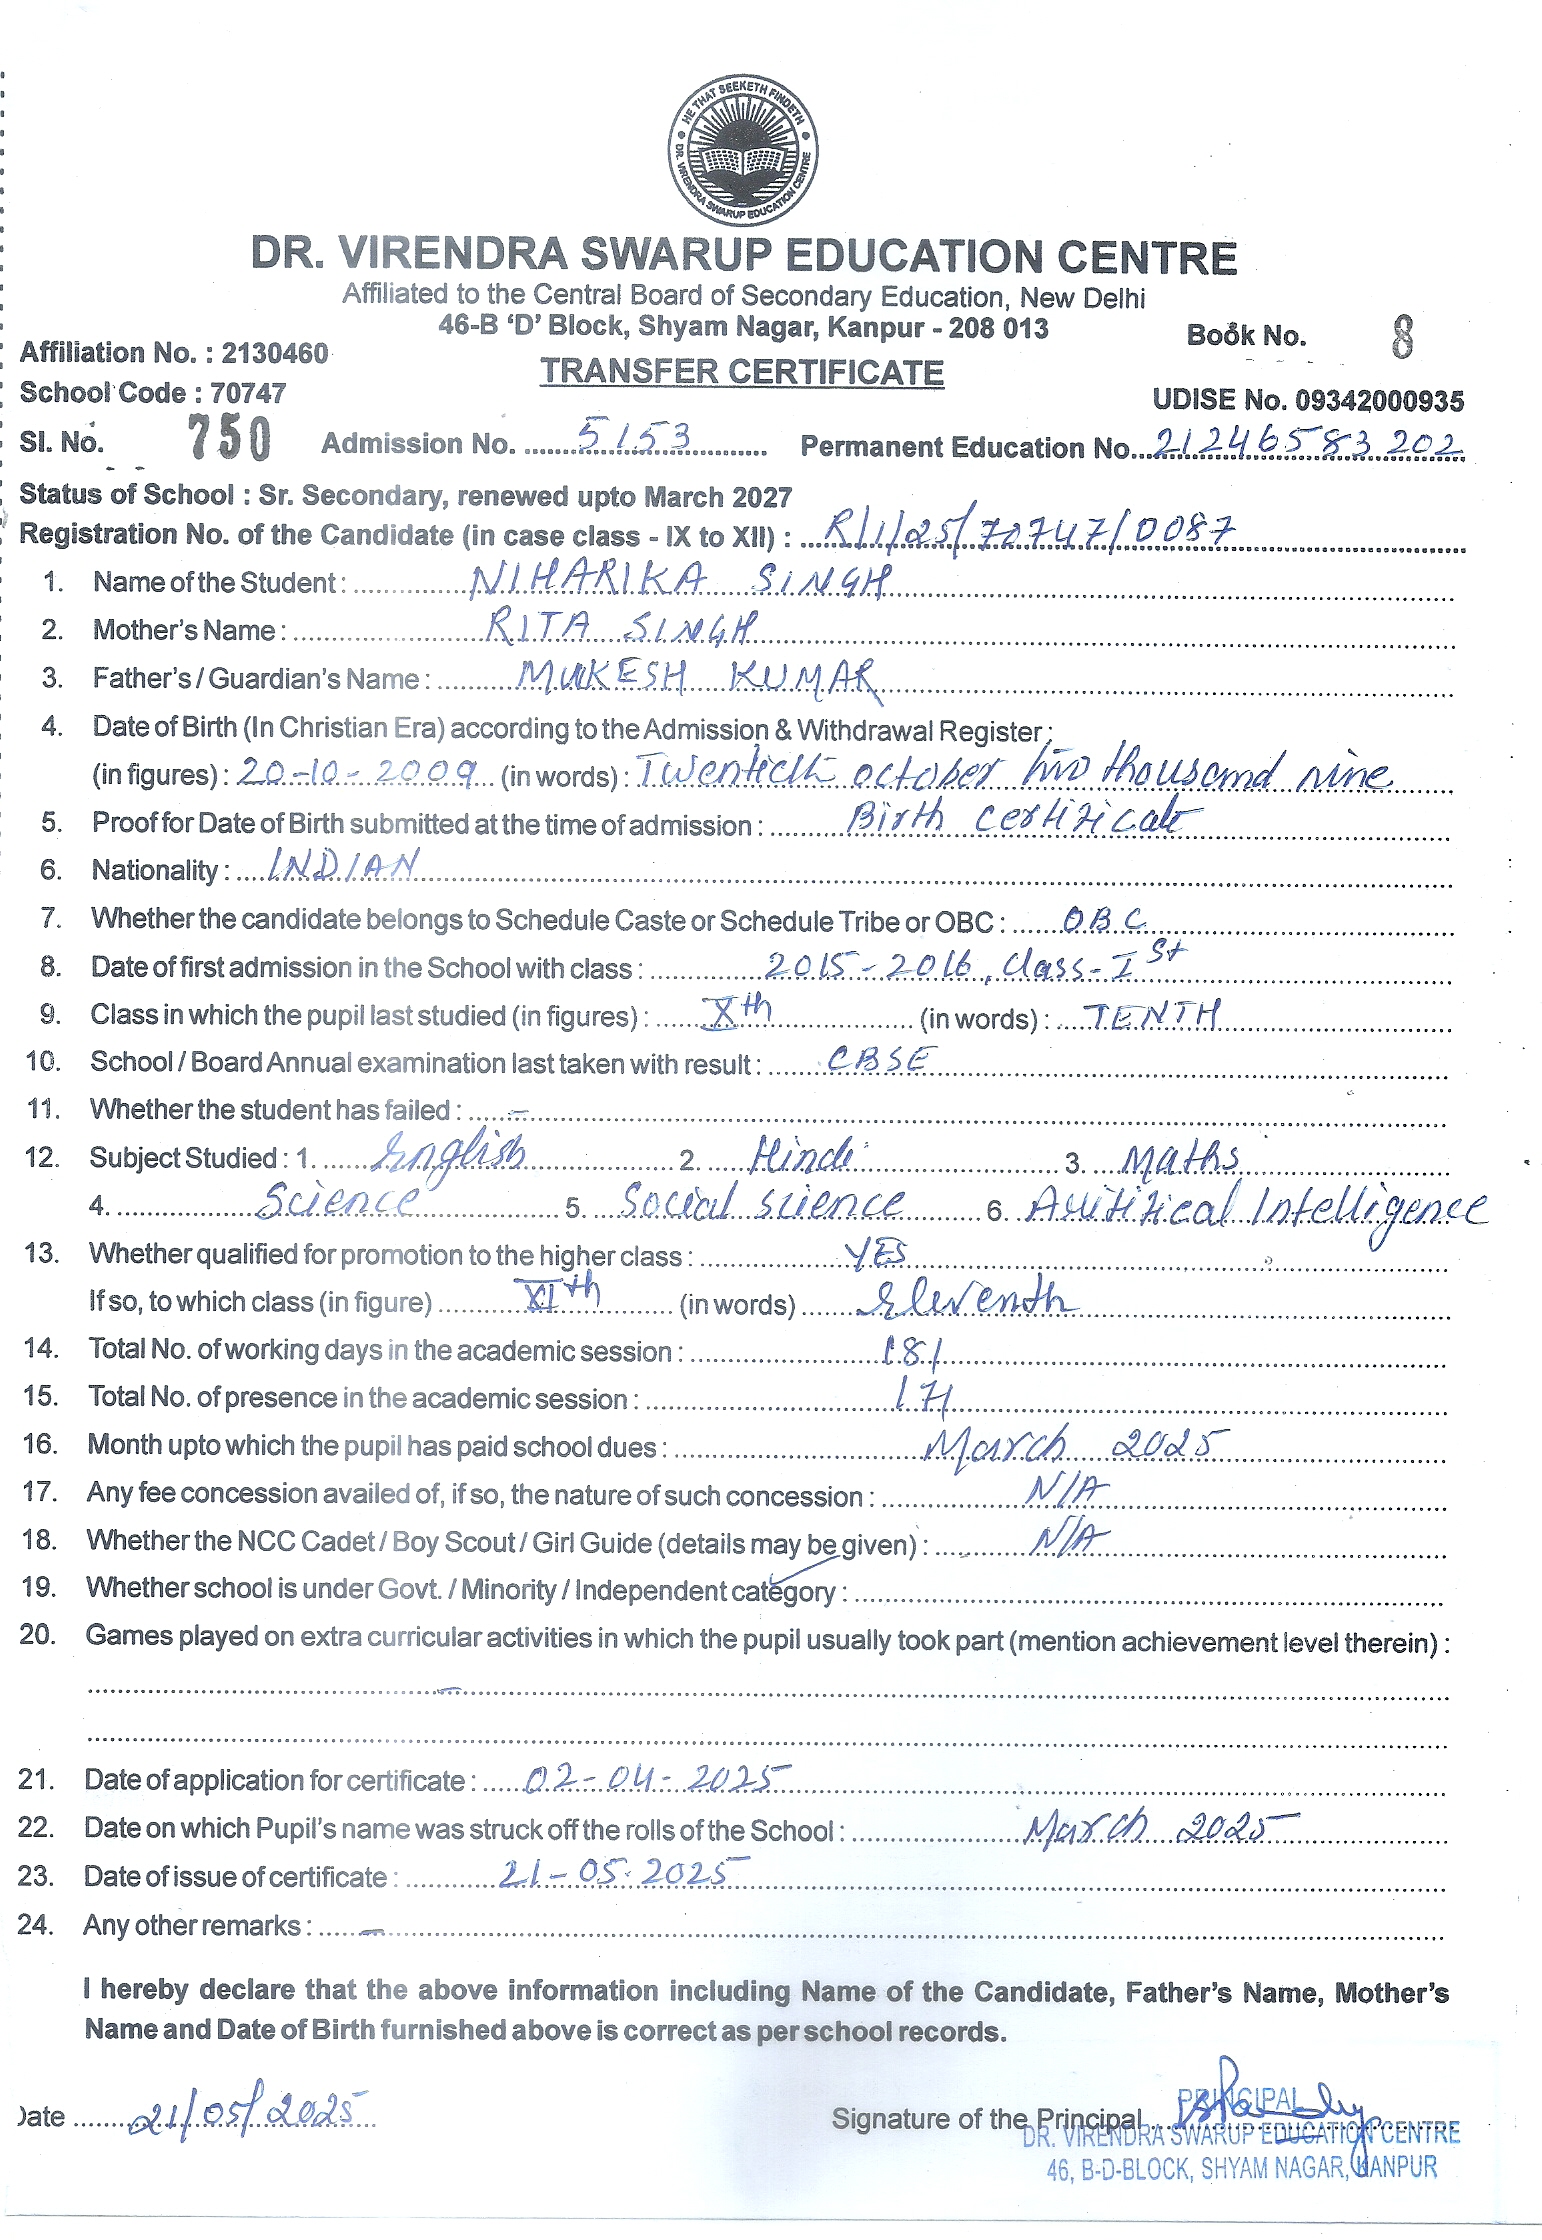 HE THAT SEEKETH FINDETH
DR. VIRENDRA SWARUP EDUCATION CENTRE
DR. VIRENDRA SWARUP EDUCATION CENTRE
Affiliated to the Central Board of Secondary Education, New Delhi
46-B 'D' Block, Shyam Nagar, Kanpur - 208 013
Book No. 8
Affiliation No. : 2130460
TRANSFER CERTIFICATE
School Code : 70747
UDISE No. 09342000935
Sl. No. 750 Admission No. 5153 Permanent Education No. 21246583202
Status of School : Sr. Secondary, renewed upto March 2027
Registration No. of the Candidate (in case class - IX to XII) : R/1/25/70747/0087
1. Name of the Student : NIHARIKA SINGH
2. Mother's Name : RITA SINGH
3. Father's / Guardian's Name : MUKESH KUMAR
4. Date of Birth (In Christian Era) according to the Admission & Withdrawal Register :
(in figures) : 20-10-2009 (in words) : Twentieth october two thousand nine
5. Proof for Date of Birth submitted at the time of admission : Birth certificate
6. Nationality : INDIAN
7. Whether the candidate belongs to Schedule Caste or Schedule Tribe or OBC : OBC
8. Date of first admission in the School with class : 2015-2016, Class-I st
9. Class in which the pupil last studied (in figures) : Xth (in words) : TENTH
10. School / Board Annual examination last taken with result : CBSE
11. Whether the student has failed : -
12. Subject Studied : 1. English 2. Hindi 3. Maths
4. Science 5. Social science 6. Intelligence
13. Whether qualified for promotion to the higher class : YES
If so, to which class (in figure) XIth (in words) Eleventh
14. Total No. of working days in the academic session : 181
15. Total No. of presence in the academic session : 171
16. Month upto which the pupil has paid school dues : March 2025
17. Any fee concession availed of, if so, the nature of such concession : N/A
18. Whether the NCC Cadet / Boy Scout / Girl Guide (details may be given) : N/A
19. Whether school is under Govt. / Minority / Independent category :
20. Games played on extra curricular activities in which the pupil usually took part (mention achievement level therein) :
-
21. Date of application for certificate : 02-04-2025
22. Date on which Pupil's name was struck off the rolls of the School : March 2025
23. Date of issue of certificate : 21-05-2025
24. Any other remarks : -
I hereby declare that the above information including Name of the Candidate, Father's Name, Mother's
Name and Date of Birth furnished above is correct as per school records.
Date 21/05/2025
Signature of the Principal
PRINCIPAL
DR. VIRENDRA SWARUP EDUCATION CENTRE
46, B-D-BLOCK, SHYAM NAGAR, KANPUR